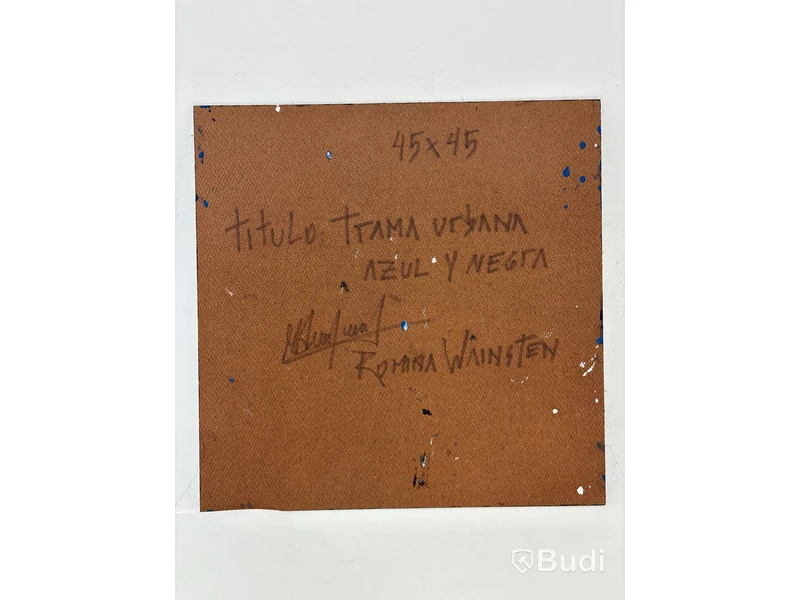 45x45
TITULO: TRAMA URBANA
AZUL Y NEGRA
ROMINA WAINSTEN
Budi